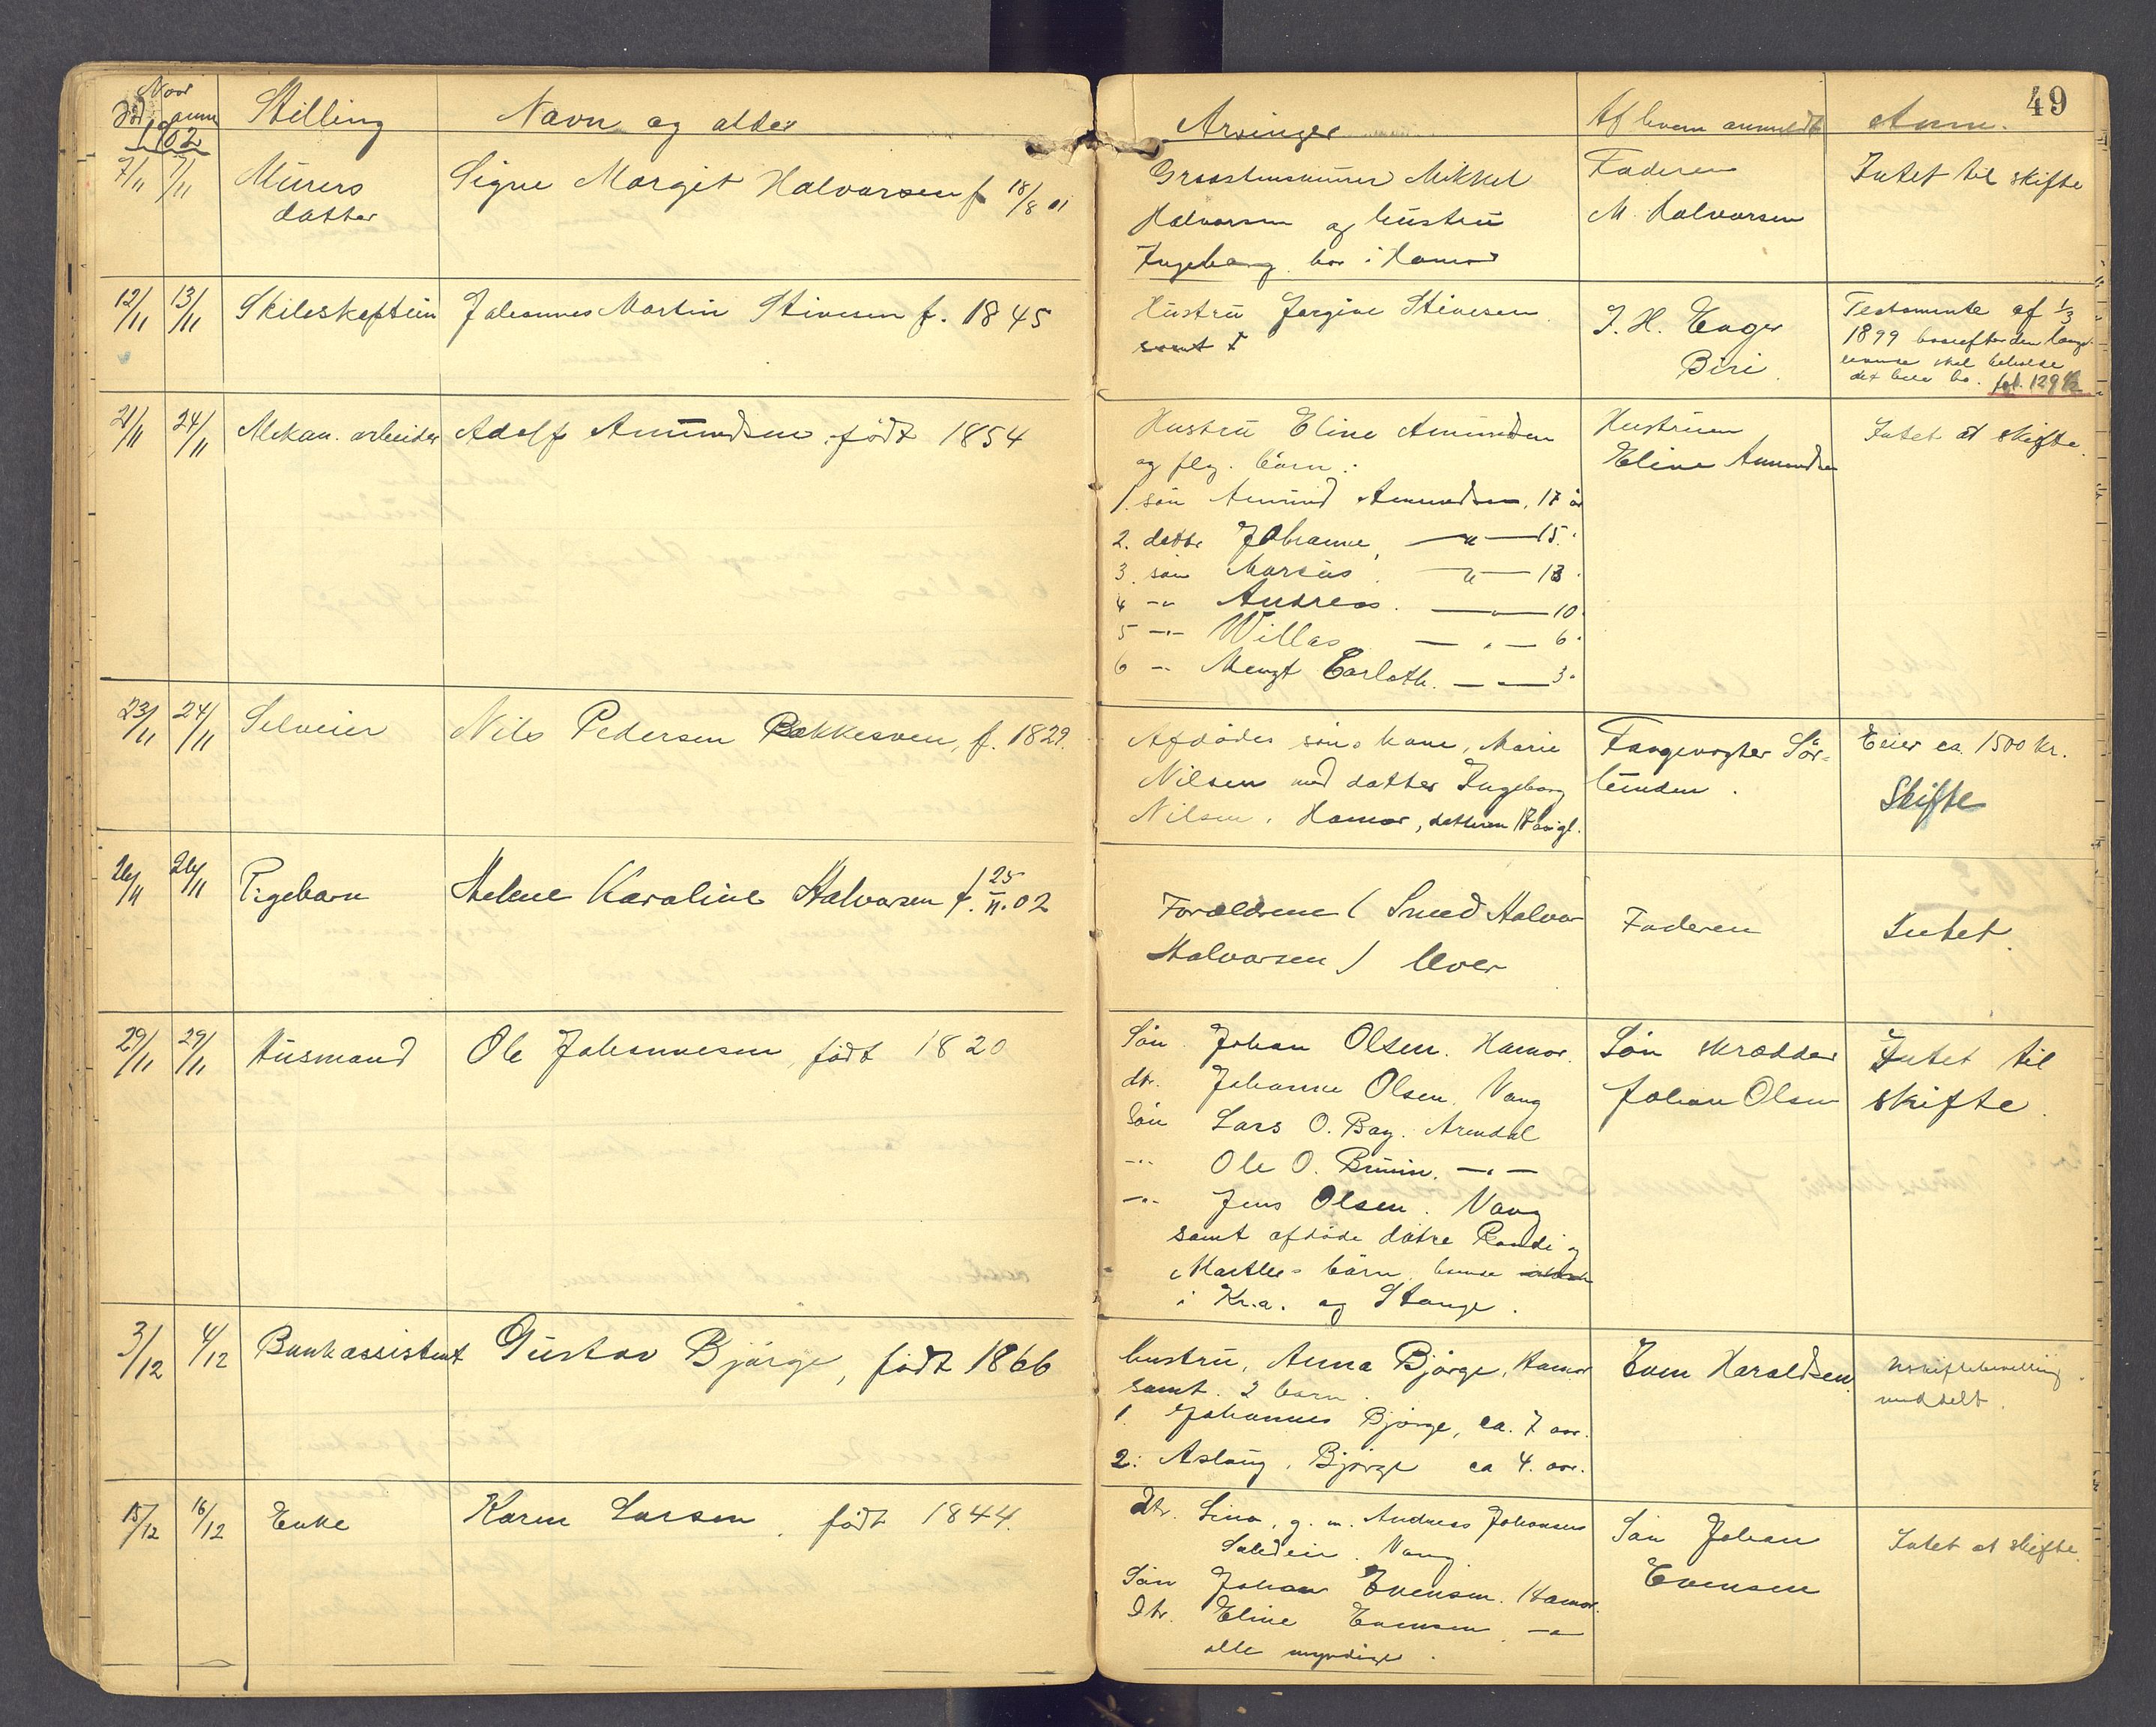 49
Naar
död anm
1902
Stilling
Navn og alder
Arvinger
Af hvem anmeldt
Anm.
7/11 7/11
Murers
datter
Signe Margit Halvorsen f 18/8 01
Mikkel
Halvorsen og hustru
Ingeborg bor i Hamar
Faderen
M. Halvorsen
Intet til skifte
12/11 13/11
Johannes Martin Stivesen f. 1845
Hustru Jørgine Stivesen
samt
J. H. Enger
Biri
Testamente af 1/3
1899 hvorefter den længst
levende skal beholde
det hele bo. fol. 129
21/11 24/11
Mekan. arbeider
Adolf Amundsen, født 1854
Hustru Eline Amundsen
og flg. børn:
1. søn Amund Amundsen, 17 år
2. datter Johanne, — " — 15.
3. søn Marcus. — " — 13.
4 -"- Andreas. — " — 10.
5 -"- Willas — " — 6.
6 -"- Mengt Carloth. — " — 3.
Hustruen
Eline Amundsen
Intet at skifte.
23/11 24/11
Selveier
Nils Pedersen Bakkesveen, f. 1829.
Afdødes søns kone, Marie
Nilsen med datter Ingeborg
Nilsen, Hamar, datteren 18 år gl.
Fangevogter Sör-
lunden.
Eier ca. 1500 kr.
Skifte
26/11 26/11
Pigebarn
Helene Karoline Halvorsen f. 25/11.02
Forældrene (Smed Halvor
Halvorsen) lever
Faderen
Intet.
29/11 29/11
Husmand
Ole Johannesen, født 1820
Søn Johan Olsen. Hamar.
dtr. Johanne Olsen. Vang
Søn Lars O. Bay. Arendal
-"- Ole O. Bruun. — " —
-"- Jens Olsen. Vang
samt afdøde døtre Randi og
Marthes børn,
i Kr.a. og Stange.
Søn skrædder
Johan Olsen
Intet til
skifte.
3/12 4/12
Bankassistent
Gustav Bjørge, født 1866
hustru, Anna Bjørge, Hamar
samt 2 børn.
1. Johannes Bjørge, ca. 7 aar.
2: Aslaug Bjørge ca 4. aar.
Even Haraldsen.
Uskiftebevilling
meddelt.
15/12 16/12
Enke
Karen Larsen, født 1844.
Dtr. Lina, g. m. Andreas Johansen
Vang.
Søn Johan Evensen. Hamar.
Dtr. Eline Evensen. — " —
alle myndige.
Søn Johan
Evensen
Intet at skifte.